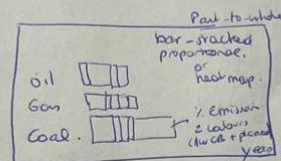 Part-to-whole
bar-stacked
proportional.
or
heat map.
Oil
Gas
Coal.
% Emission
2 colours
years